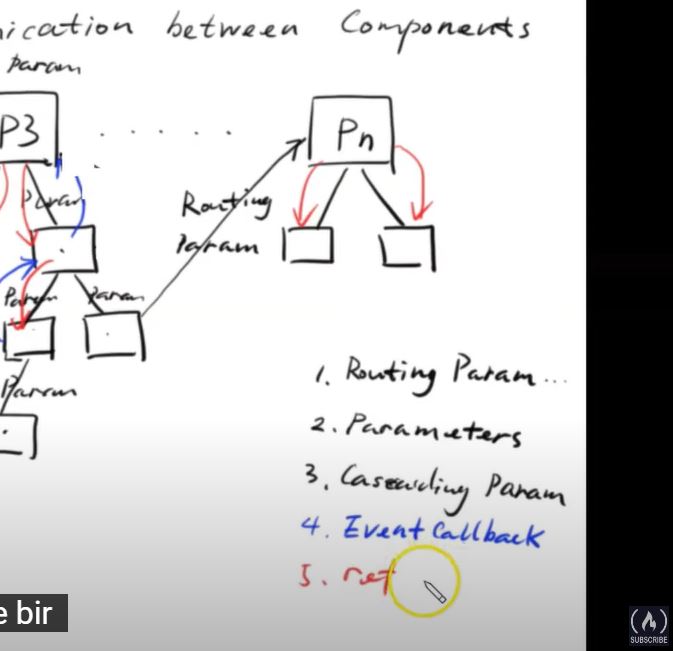 ication between Components
Param
P3
Pn
Param
Routing
Param
Param Param
Param
1. Routing Param...
2. Parameters
3. Cascading Param
4. Event Callback
5. ref
e bir
SUBSCRIBE